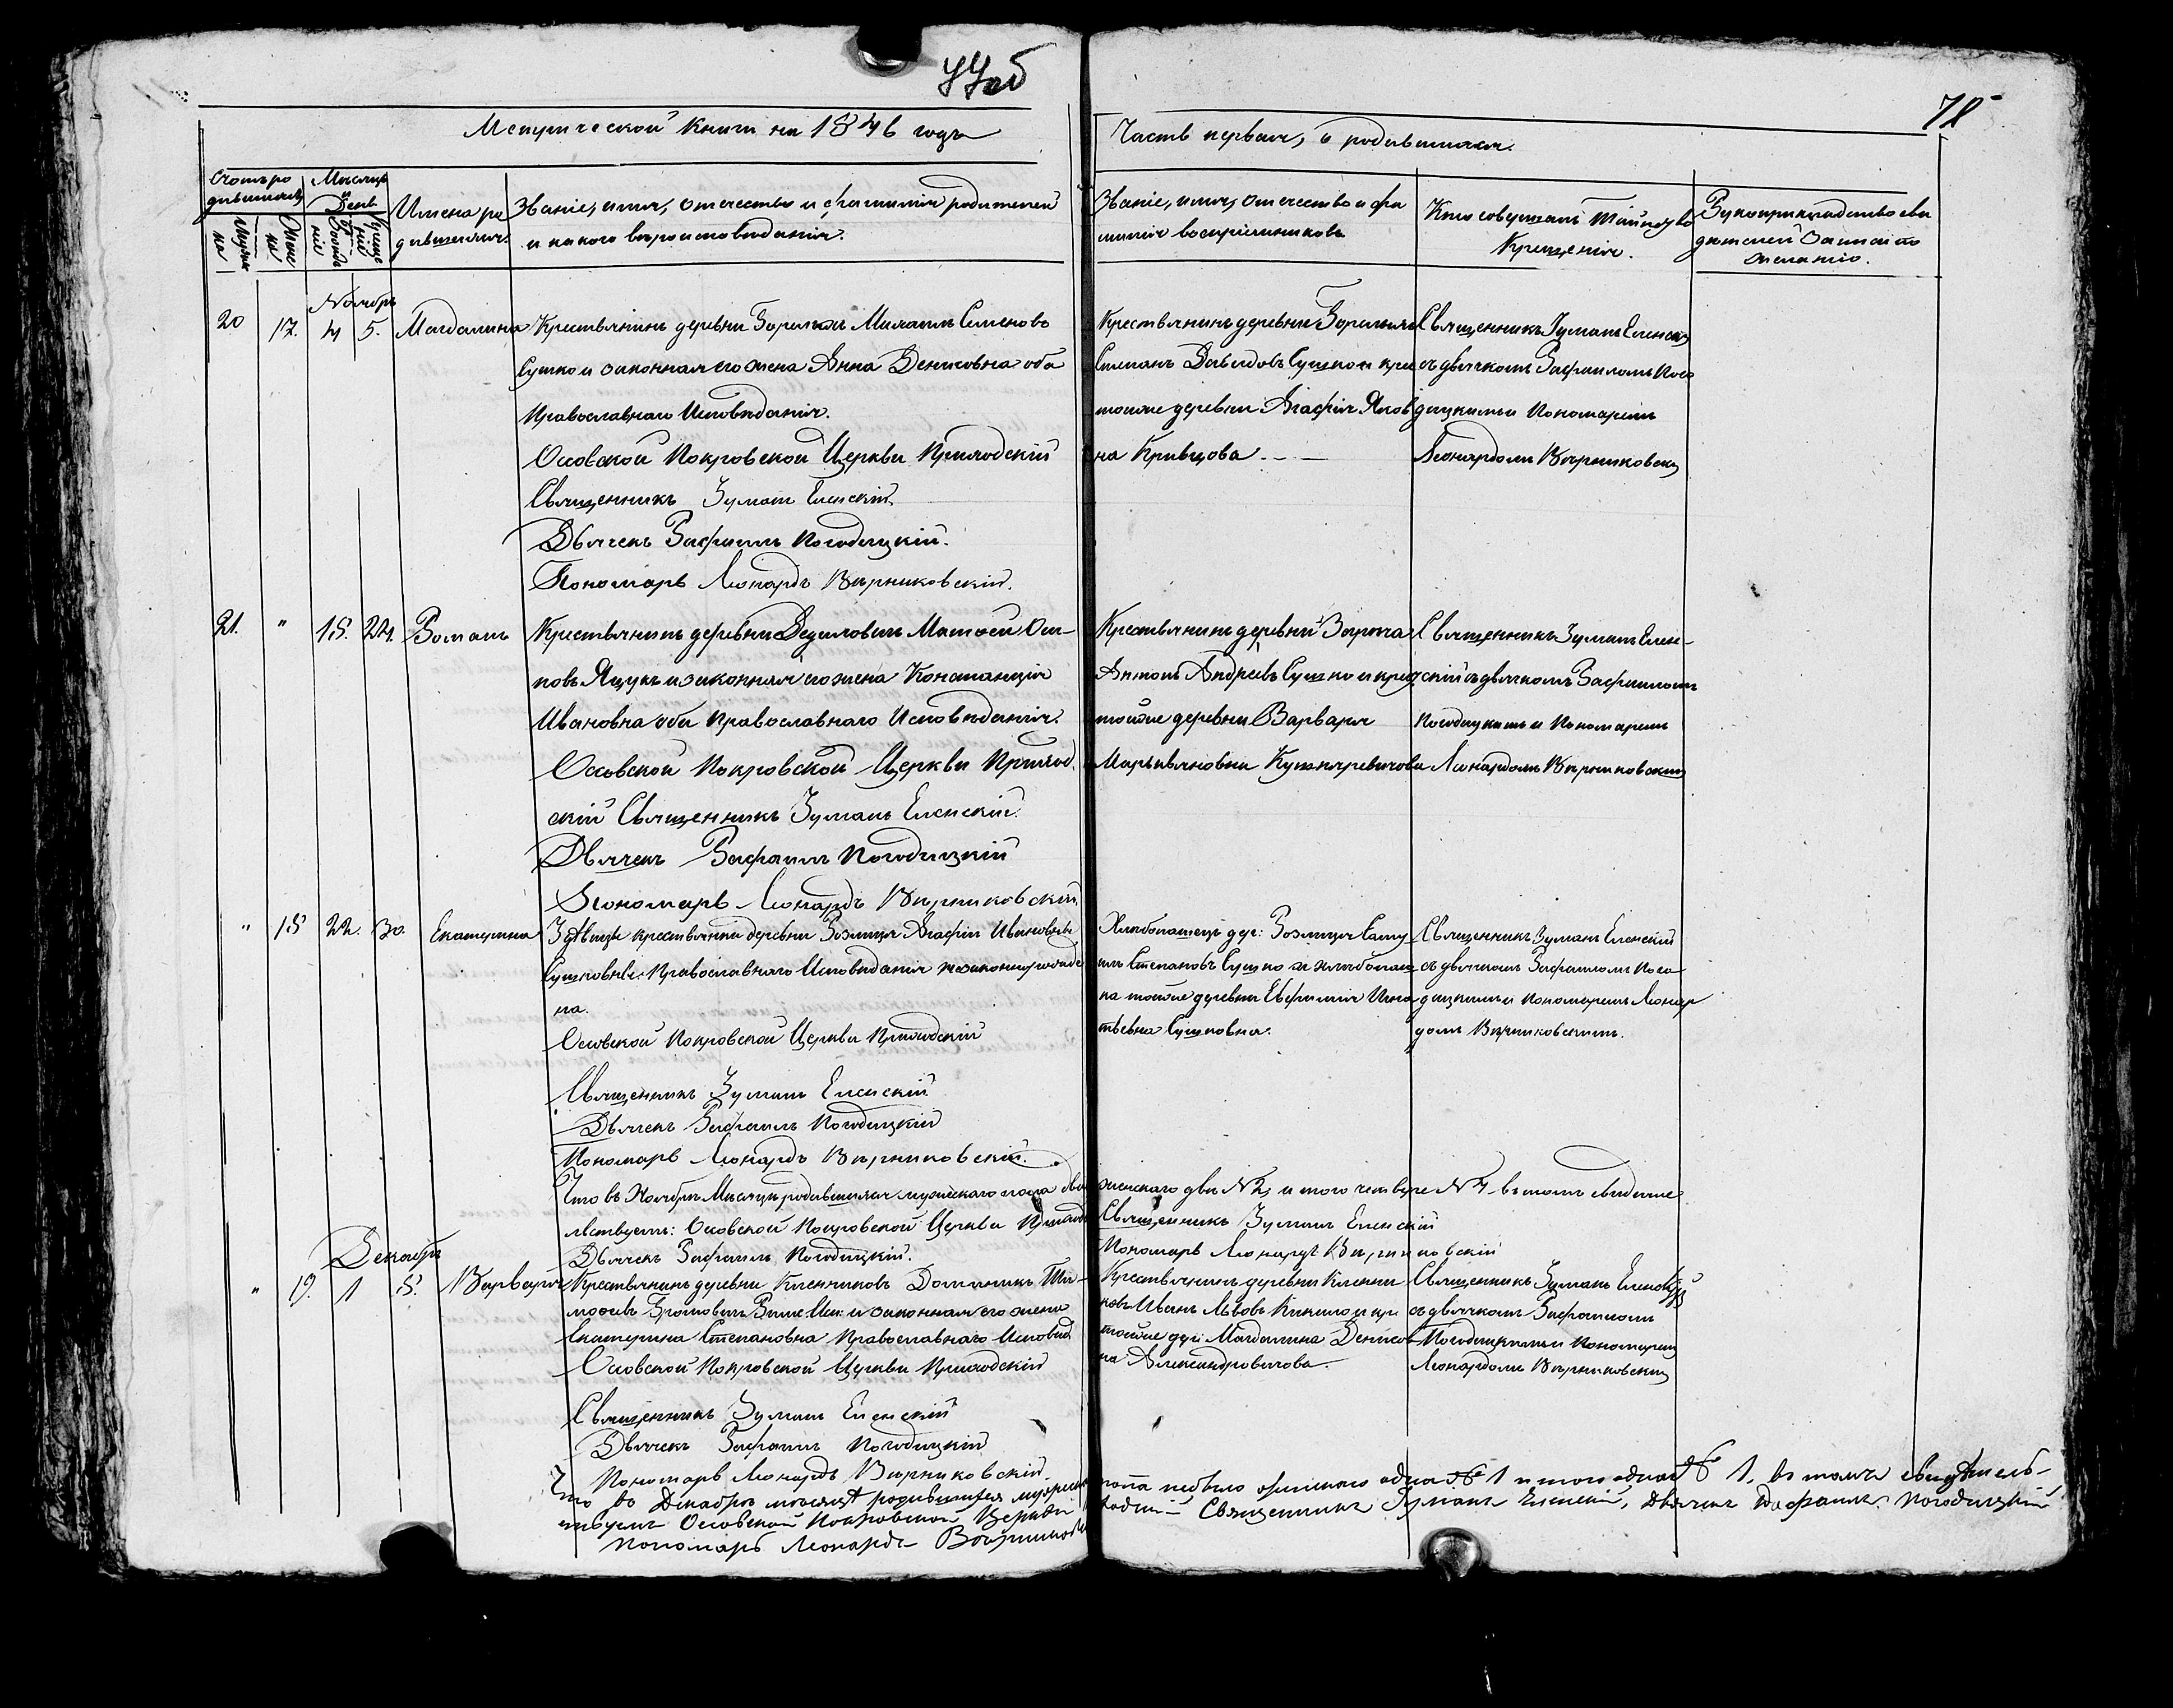 77об
78
Метрической Книги на 1846 годъ
Часть первая, о родившихся.
Счетъ родившихся
Мужеска
Женска
Мѣсяцъ и День
Рожденіе
Крещеніе
Имена родившихся.
Званіе, имя, отчество и фамилія родителей
и какого вѣроисповѣданія.
Званіе, имя, отчество и фа
милія воспріемниковъ
Кто совершалъ таинство
Крещенія.
Рукоприкладство сви
дѣтелей записи по
желанію.
Ноябрь
20 17. 4 5. Магдалина
Крестьянинъ деревни Михаилъ Семеновъ
Сушко и законная его жена Анна Денисовна оба
Православнаго Исповѣданія.
Осовской Покровской Церкви Приходскій
Священникъ Еленскій
Дьячекъ Рафаилъ Погодицкій.
Пономарь Леонардъ Вѣрниковскій.
Крестьянинъ деревни
Степанъ Давидовъ Сушко и крес
тойже деревни Агафія Яков
на Кривцова
Священникъ Еленскій
съ дьячкомъ Рафаиломъ Пого
дицкимъ и Пономаремъ
Леонардомъ Вѣрниковск
21. " 15. 24. Романъ
Крестьянинъ деревни Матвей Оси
повъ Яцукъ и законная его жена Констанція
Ивановна оба Православнаго Исповѣданія.
Осовской Покровской Церкви Приход
скій Священникъ Еленскій.
Дьячекъ Рафаилъ Погодицкій
Пономарь Леонардъ Вѣрниковскій.
Крестьянинъ деревни
Антонъ Андреевъ Сушко и крес
тойже деревни Варвара
Кушняревичова
Священникъ Елен-
скій съ дьячкомъ Рафаиломъ
Погодицкимъ и Пономаремъ
Леонардомъ Вѣрниковским
" 18 22. 30. Екатерина
У дѣвицы крестьянки деревни Агафіи Ивановны
Сушковны Православнаго Исповѣданія незаконнорожде
на.
Осовской Покровской Церкви Приходскій
Священникъ Еленскій
Дьячекъ Рафаилъ Погодицкій
Пономарь Леонардъ Вѣрниковскій.
Хлѣбопашецъ дер: Саму
илъ Степановъ Сушко и хлѣбопаш
ка тойже деревни Евфимія Игна
тьевна Сушковна.
Священникъ Еленскій
съ дьячкомъ Рафаиломъ Пого
дицкимъ и Пономаремъ Леонар
домъ Вѣрниковскимъ.
Что въ Ноябрѣ Мѣсяцѣ родившихся мужескаго пола два женскаго двѣ №2, и того четверо №4 въ томъ свидѣте
льствуемъ: Осовской Покровской Церкви Приход Священникъ Еленскій
Дьячекъ Рафаилъ Погодицкій. Пономарь Леонардъ Вѣрниковскій
Декабрь
" 19. 1 5. Варвара
Крестьянинъ деревни Кленниковъ Доминикъ Ти-
мофеевъ и законная его жена
Екатерина Степановна Православнаго Исповѣд
Осовской Покровской Церкви Приходскій
Священникъ Еленскій
Дьячекъ Рафаилъ Погодицкій
Пономарь Леонардъ Вѣрниковскій.
Крестьянинъ деревни Кленни
ковъ Иванъ Львовъ и кр
тойже дер: Магдалина Денисов
на Александровичова.
Священникъ Еленскій
съ дьячкомъ Рафаиломъ
Погодицкимъ и Пономарем
Леонардомъ Вѣрниковским
Что въ Декабрѣ мѣсяцѣ родившихся мужеска пола небыло женскаго одна № 1 и того одна № 1, въ томъ свидѣтель-
ствуемъ Осовской Покровской Церкви Священникъ Еленскій, Дьячекъ Рафаилъ Погодицкій
Пономарь Леонардъ